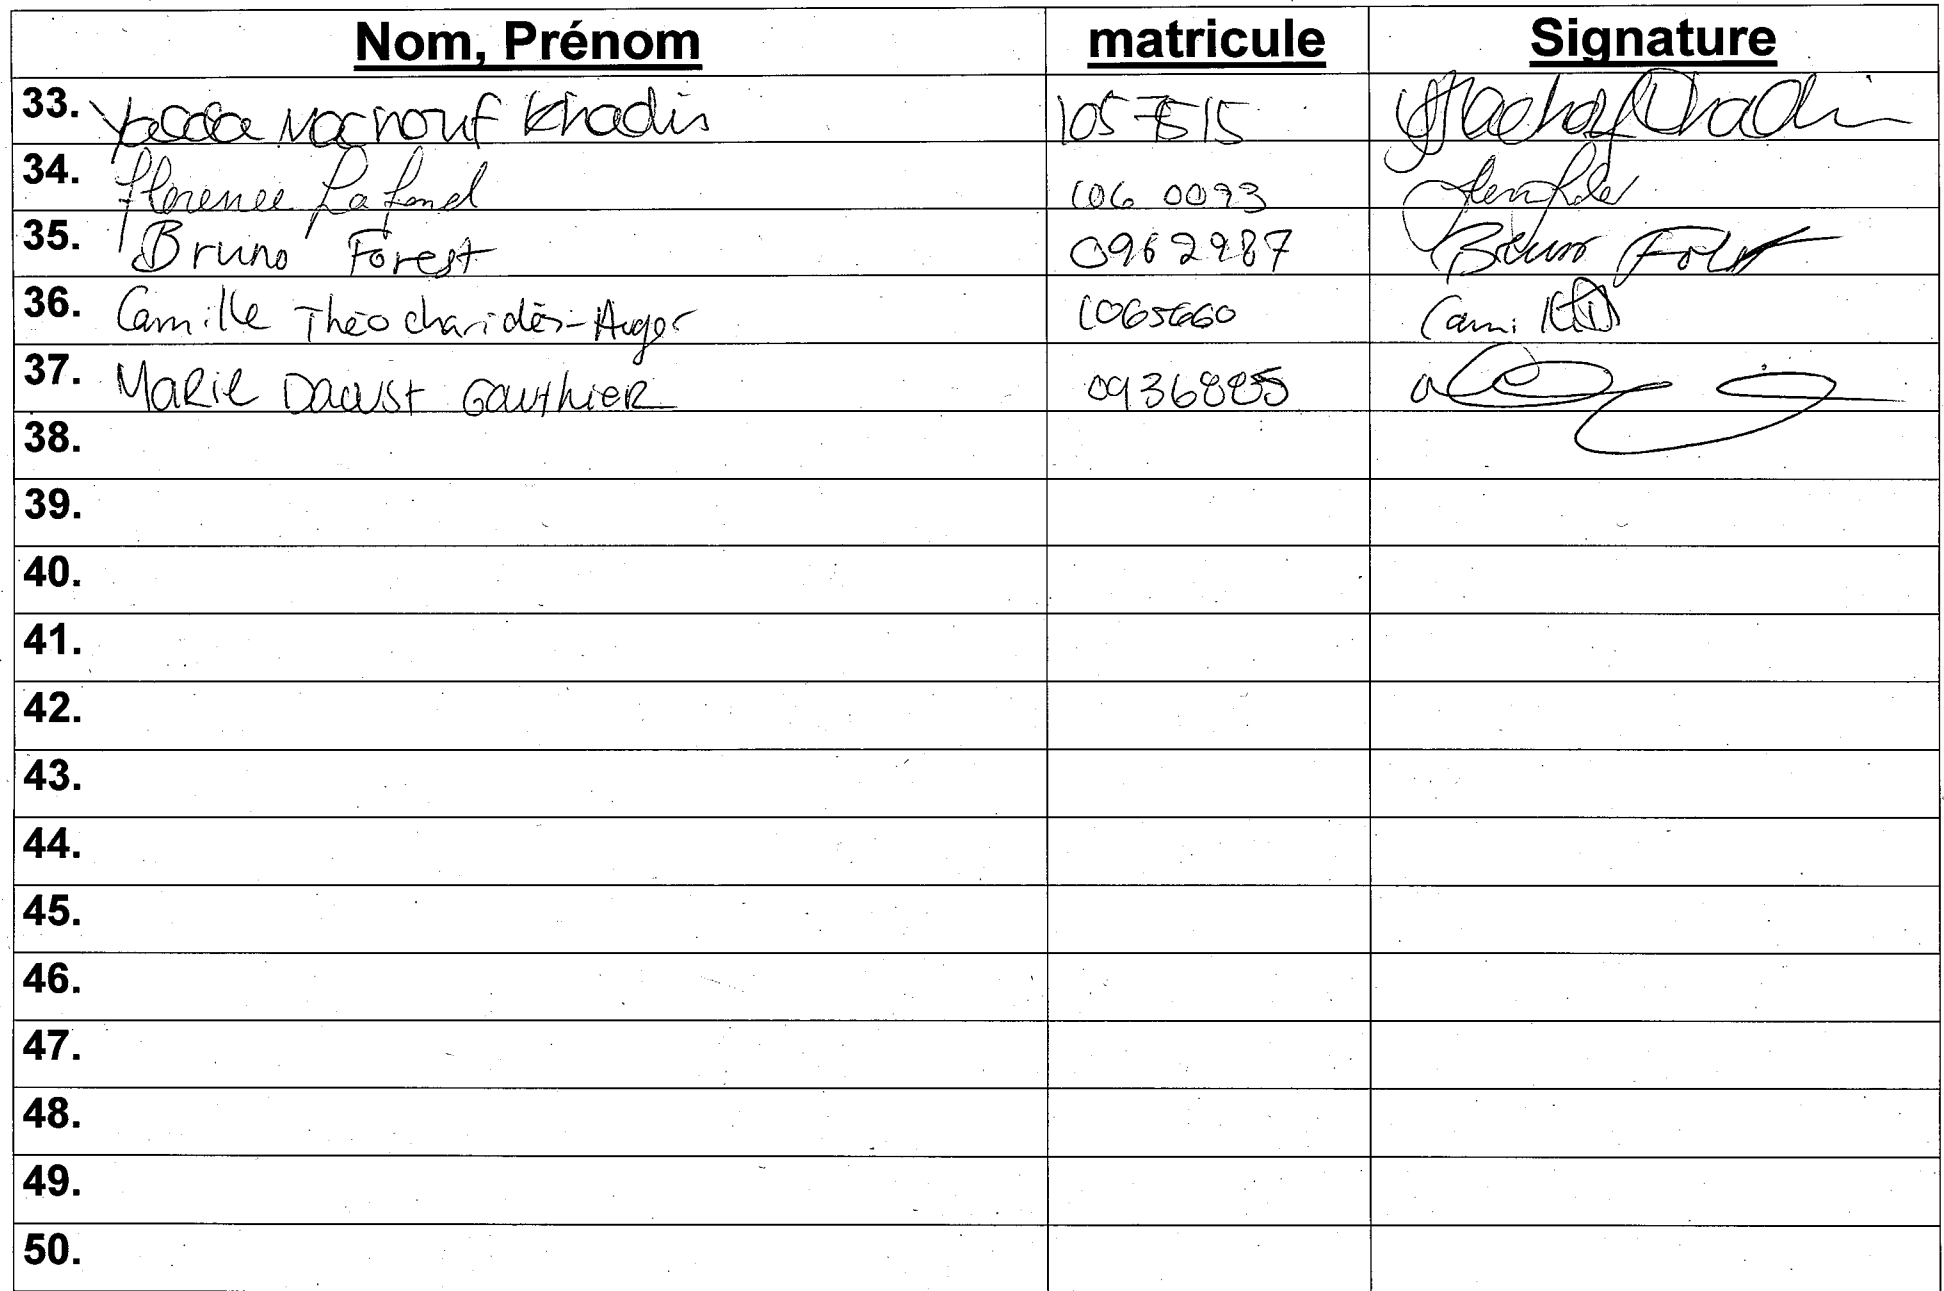 Nom, Prénom matricule Signature
33. Khadir
34. Florence Lafond 106 0093
35. Bruno Forest 0962987 Bruno Forest
36. Camille Théocharidès-Auger 1065660
37. Marie Daoust Gauthier 0936885
38.
39.
40.
41.
42.
43.
44.
45.
46.
47.
48.
49.
50.